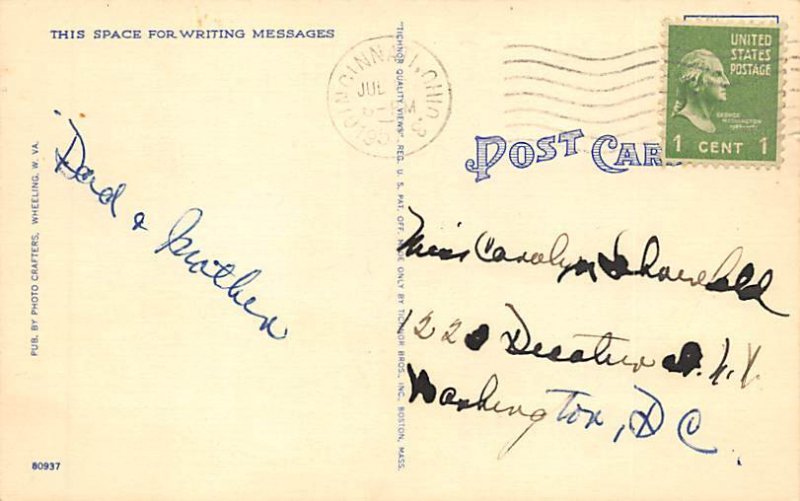 THIS SPACE FOR WRITING MESSAGES
CINCINNATI, OHIO. 3
JUL
PM
195
UNITED
STATES
POSTAGE
GEORGE
WASHINGTON
1 CENT 1
POST CARD
Dad & Mother
Miss Carolyn
122 Decatur St. N.
Washington, DC.
PUB. BY PHOTO CRAFTERS, WHEELING, W. VA.
"TICHNOR QUALITY VIEWS" REG. U. S. PAT. OFF. MADE ONLY BY TICHNOR BROS., INC., BOSTON, MASS.
80937